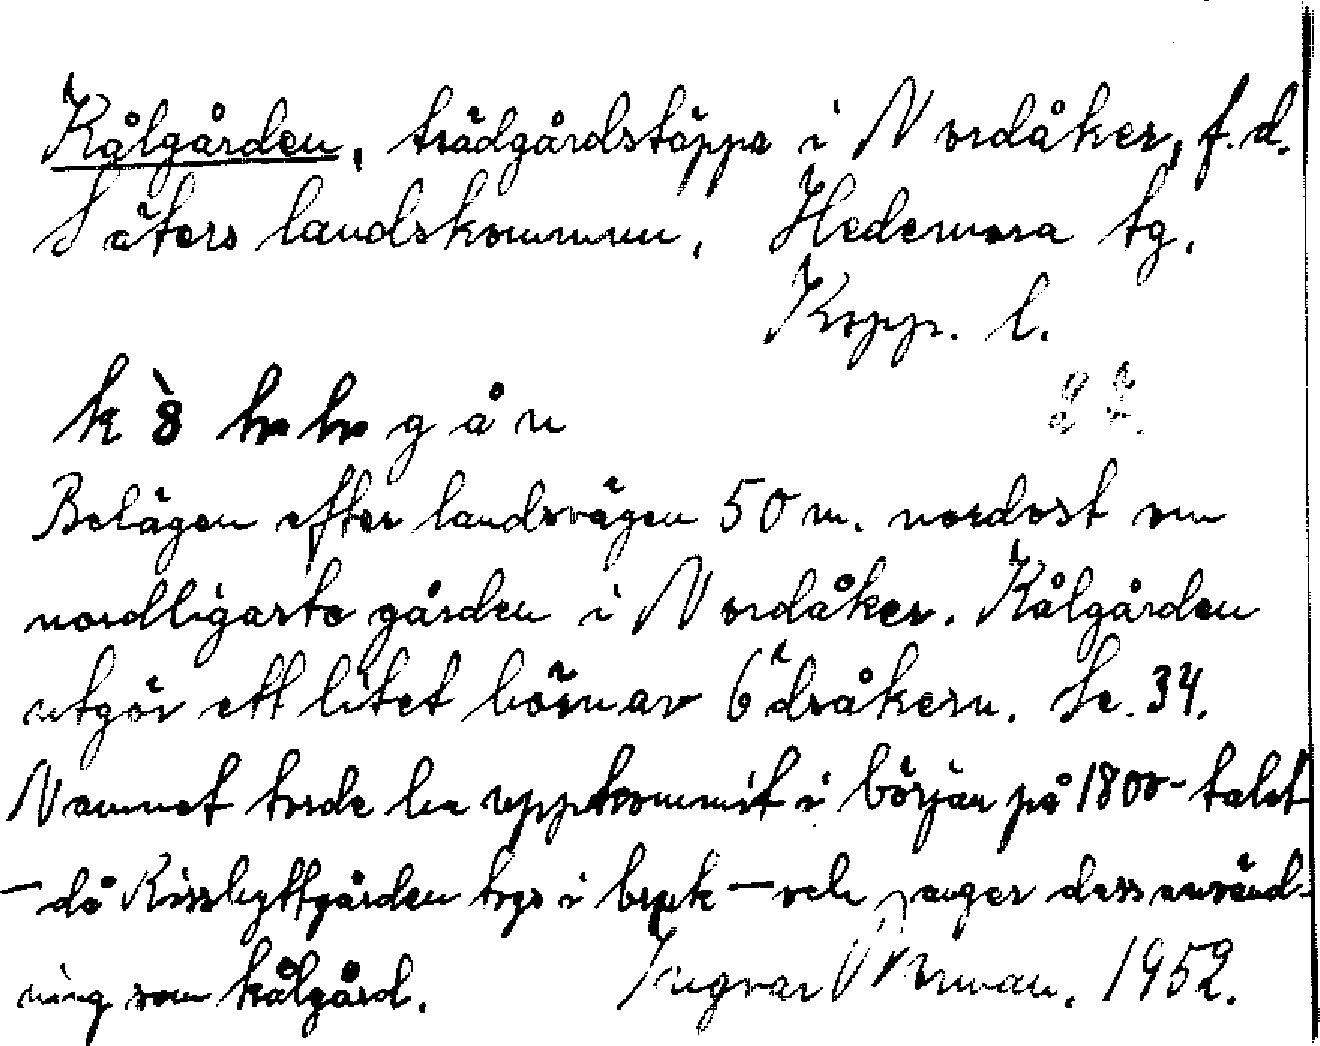 Kålgården, trädgårdstäppa i Nordåker, f.d.
Säters landskommun, Hedemora tg.
Kopp. l.
22.
Belägen efter landsvägen 50 m. nordost om
nordligaste gården i Nordåker. Kålgården
utgör ett litet hörn av Ödråkern. Se. 34.
Namnet torde ha uppkommit i början på 1800-talet
– då Risshyttgården togs i bruk – och anger dess använd-
ning som kålgård. Ingvar 1952.